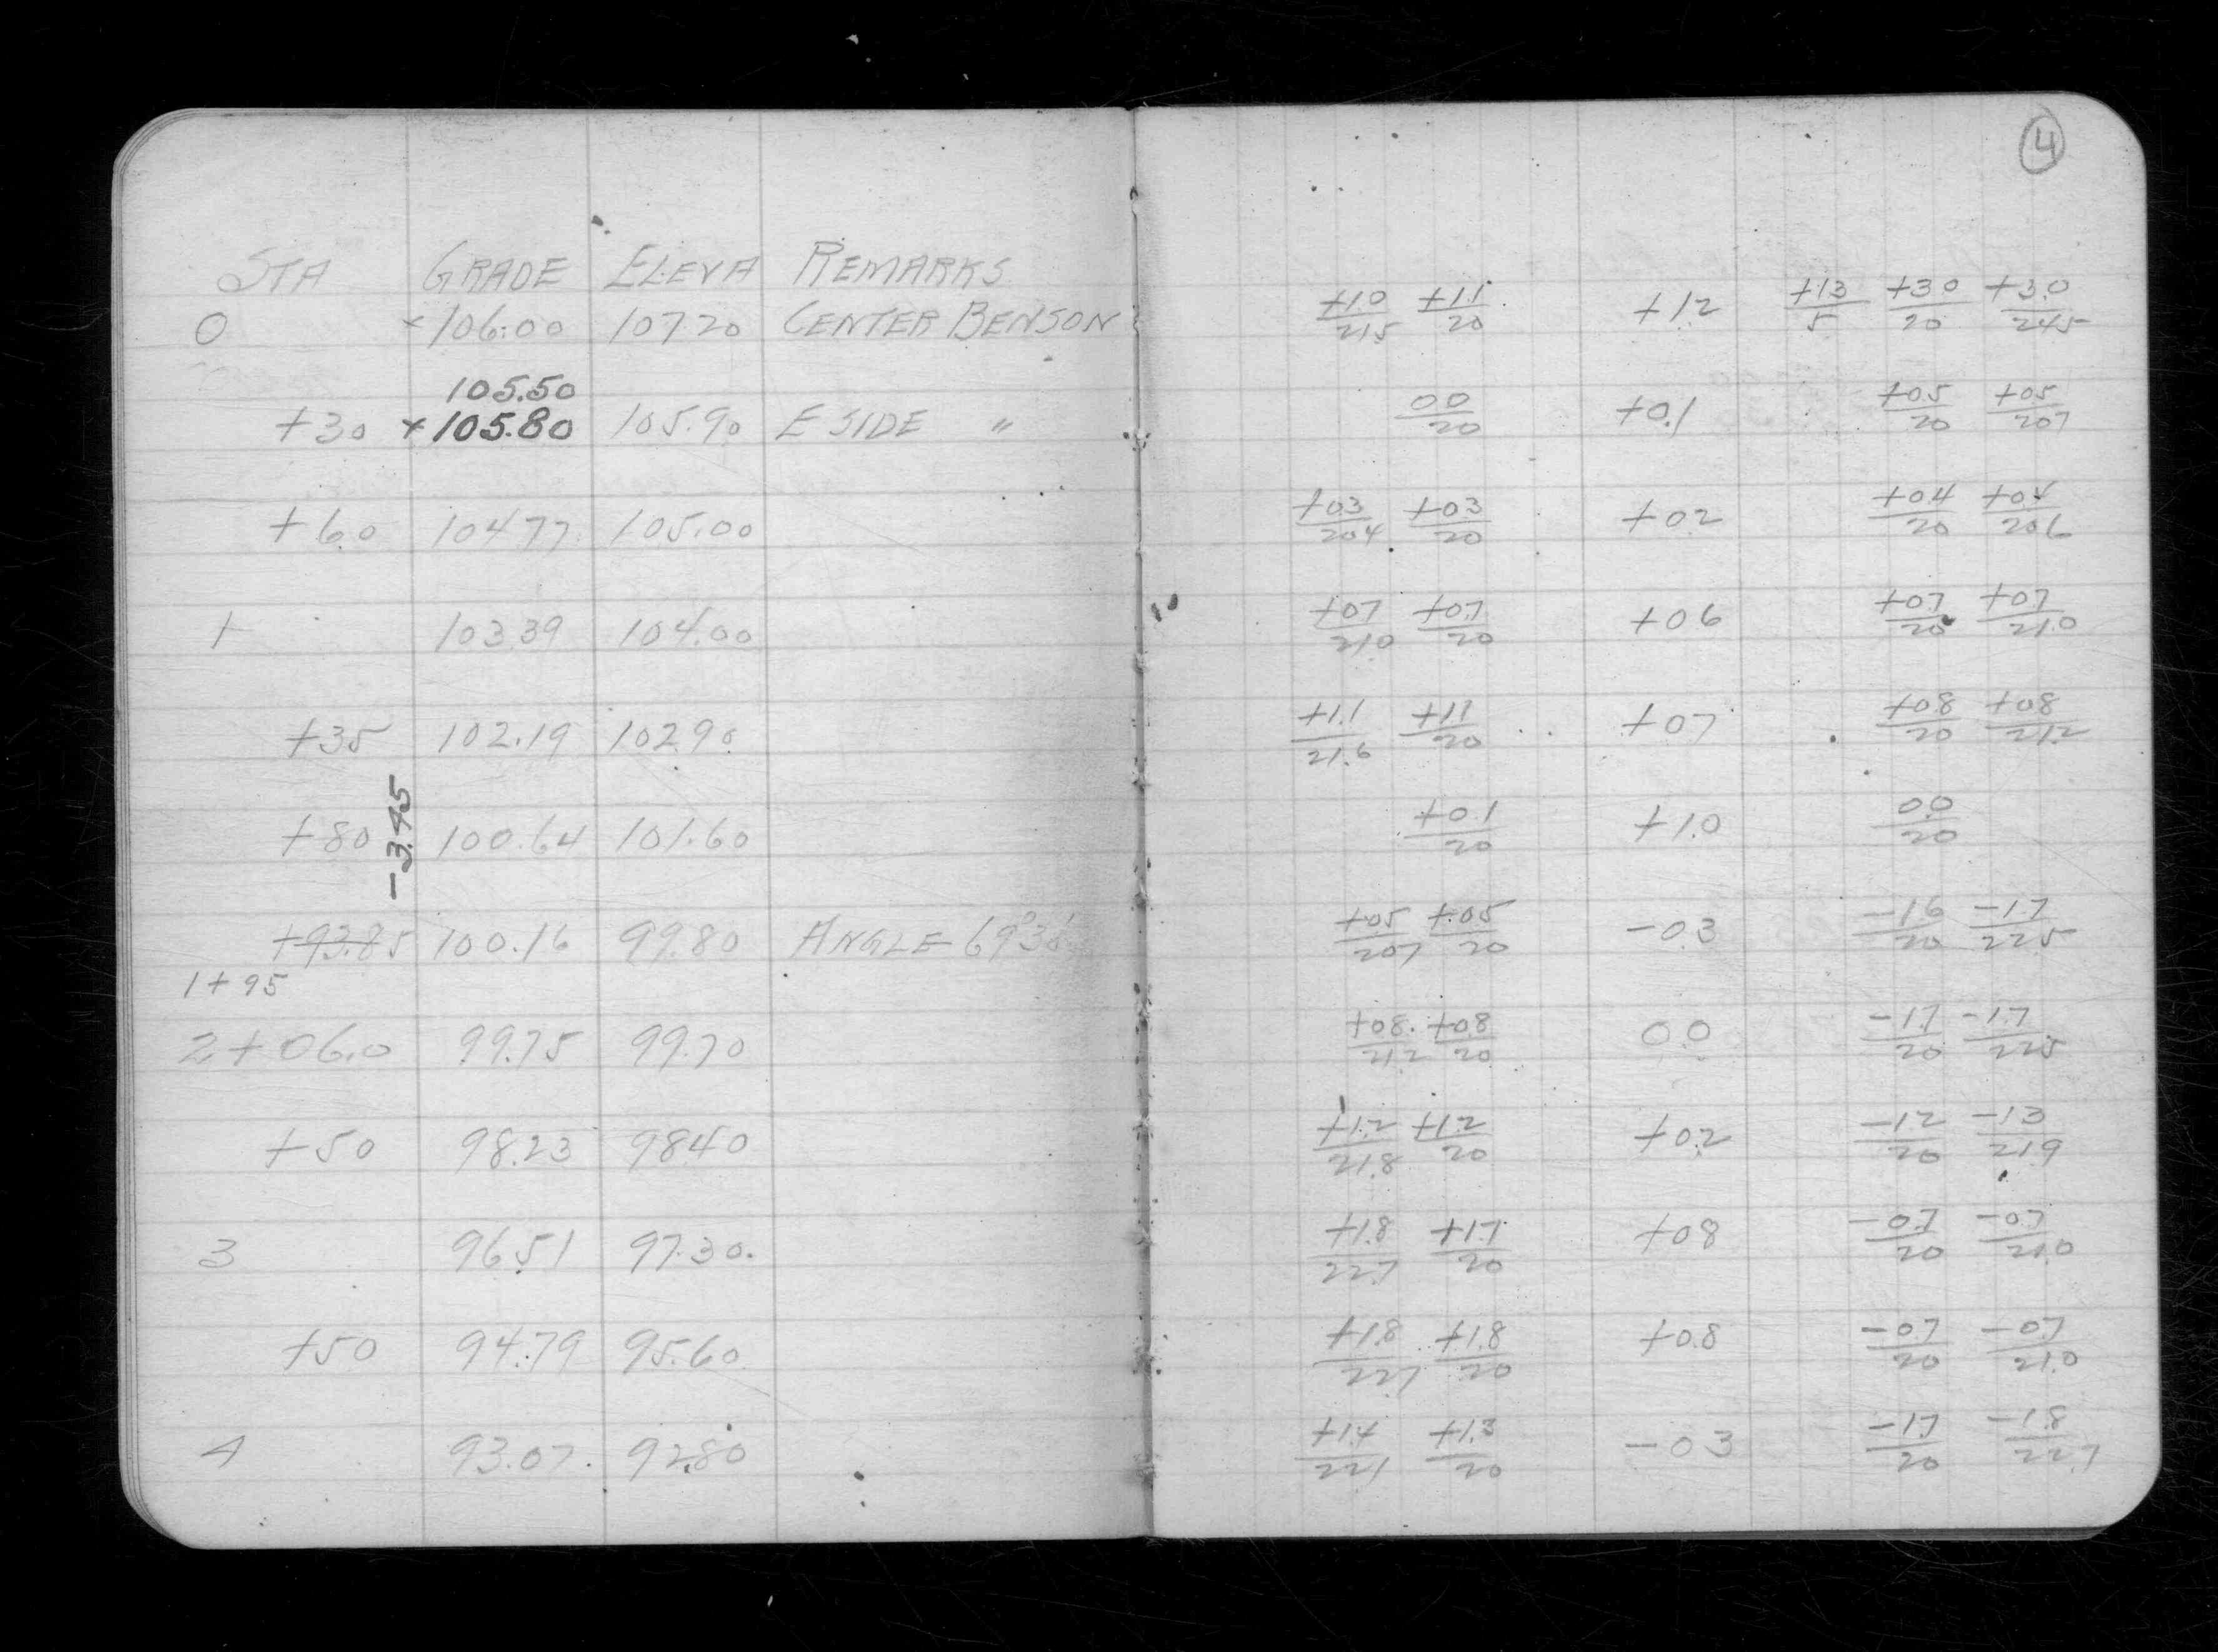 4
STA GRADE ELEVA REMARKS
0 × 106.00 107.20 CENTER BENSON +1.0/21.5 +1.1/20 +1.2 +1.3/5 +3.0/20 +3.0/24.5
105.50
+30 × 105.80 105.90 E SIDE " 00/20 +0.1 +0.5/20 +0.5/20.7
+60 104.77 105.00 +0.3/20.4 +0.3/20 +0.2 +0.4/20 +0.4/20.6
1 103.39 104.00 +0.7/21.0 +0.7/20 +0.6 +0.7/20 +0.7/21.0
+35 102.19 102.90 +1.1/21.6 +1.1/20 +0.7 +0.8/20 +0.8/21.2
-3.45
+80 100.64 101.60 +0.1/20 +1.0 0.0/20
+93.85 100.16 99.80 ANGLE 69°38' +0.5/20.7 +0.5/20 -0.3 -1.6/20 -1.7/22.5
1+95
2+06.0 99.75 99.70 +0.8/21.2 +0.8/20 0.0 -1.7/20 -1.7/22.5
+50 98.23 98.40 +1.2/21.8 +1.2/20 +0.2 -1.2/20 -1.3/21.9
3 96.51 97.30 +1.8/22.7 +1.7/20 +0.8 -0.7/20 -0.7/21.0
+50 94.79 95.60 +1.8/22.7 +1.8/20 +0.8 -0.7/20 -0.7/21.0
4 93.07 92.80 +1.4/22.1 +1.3/20 -0.3 -1.7/20 -1.8/22.7